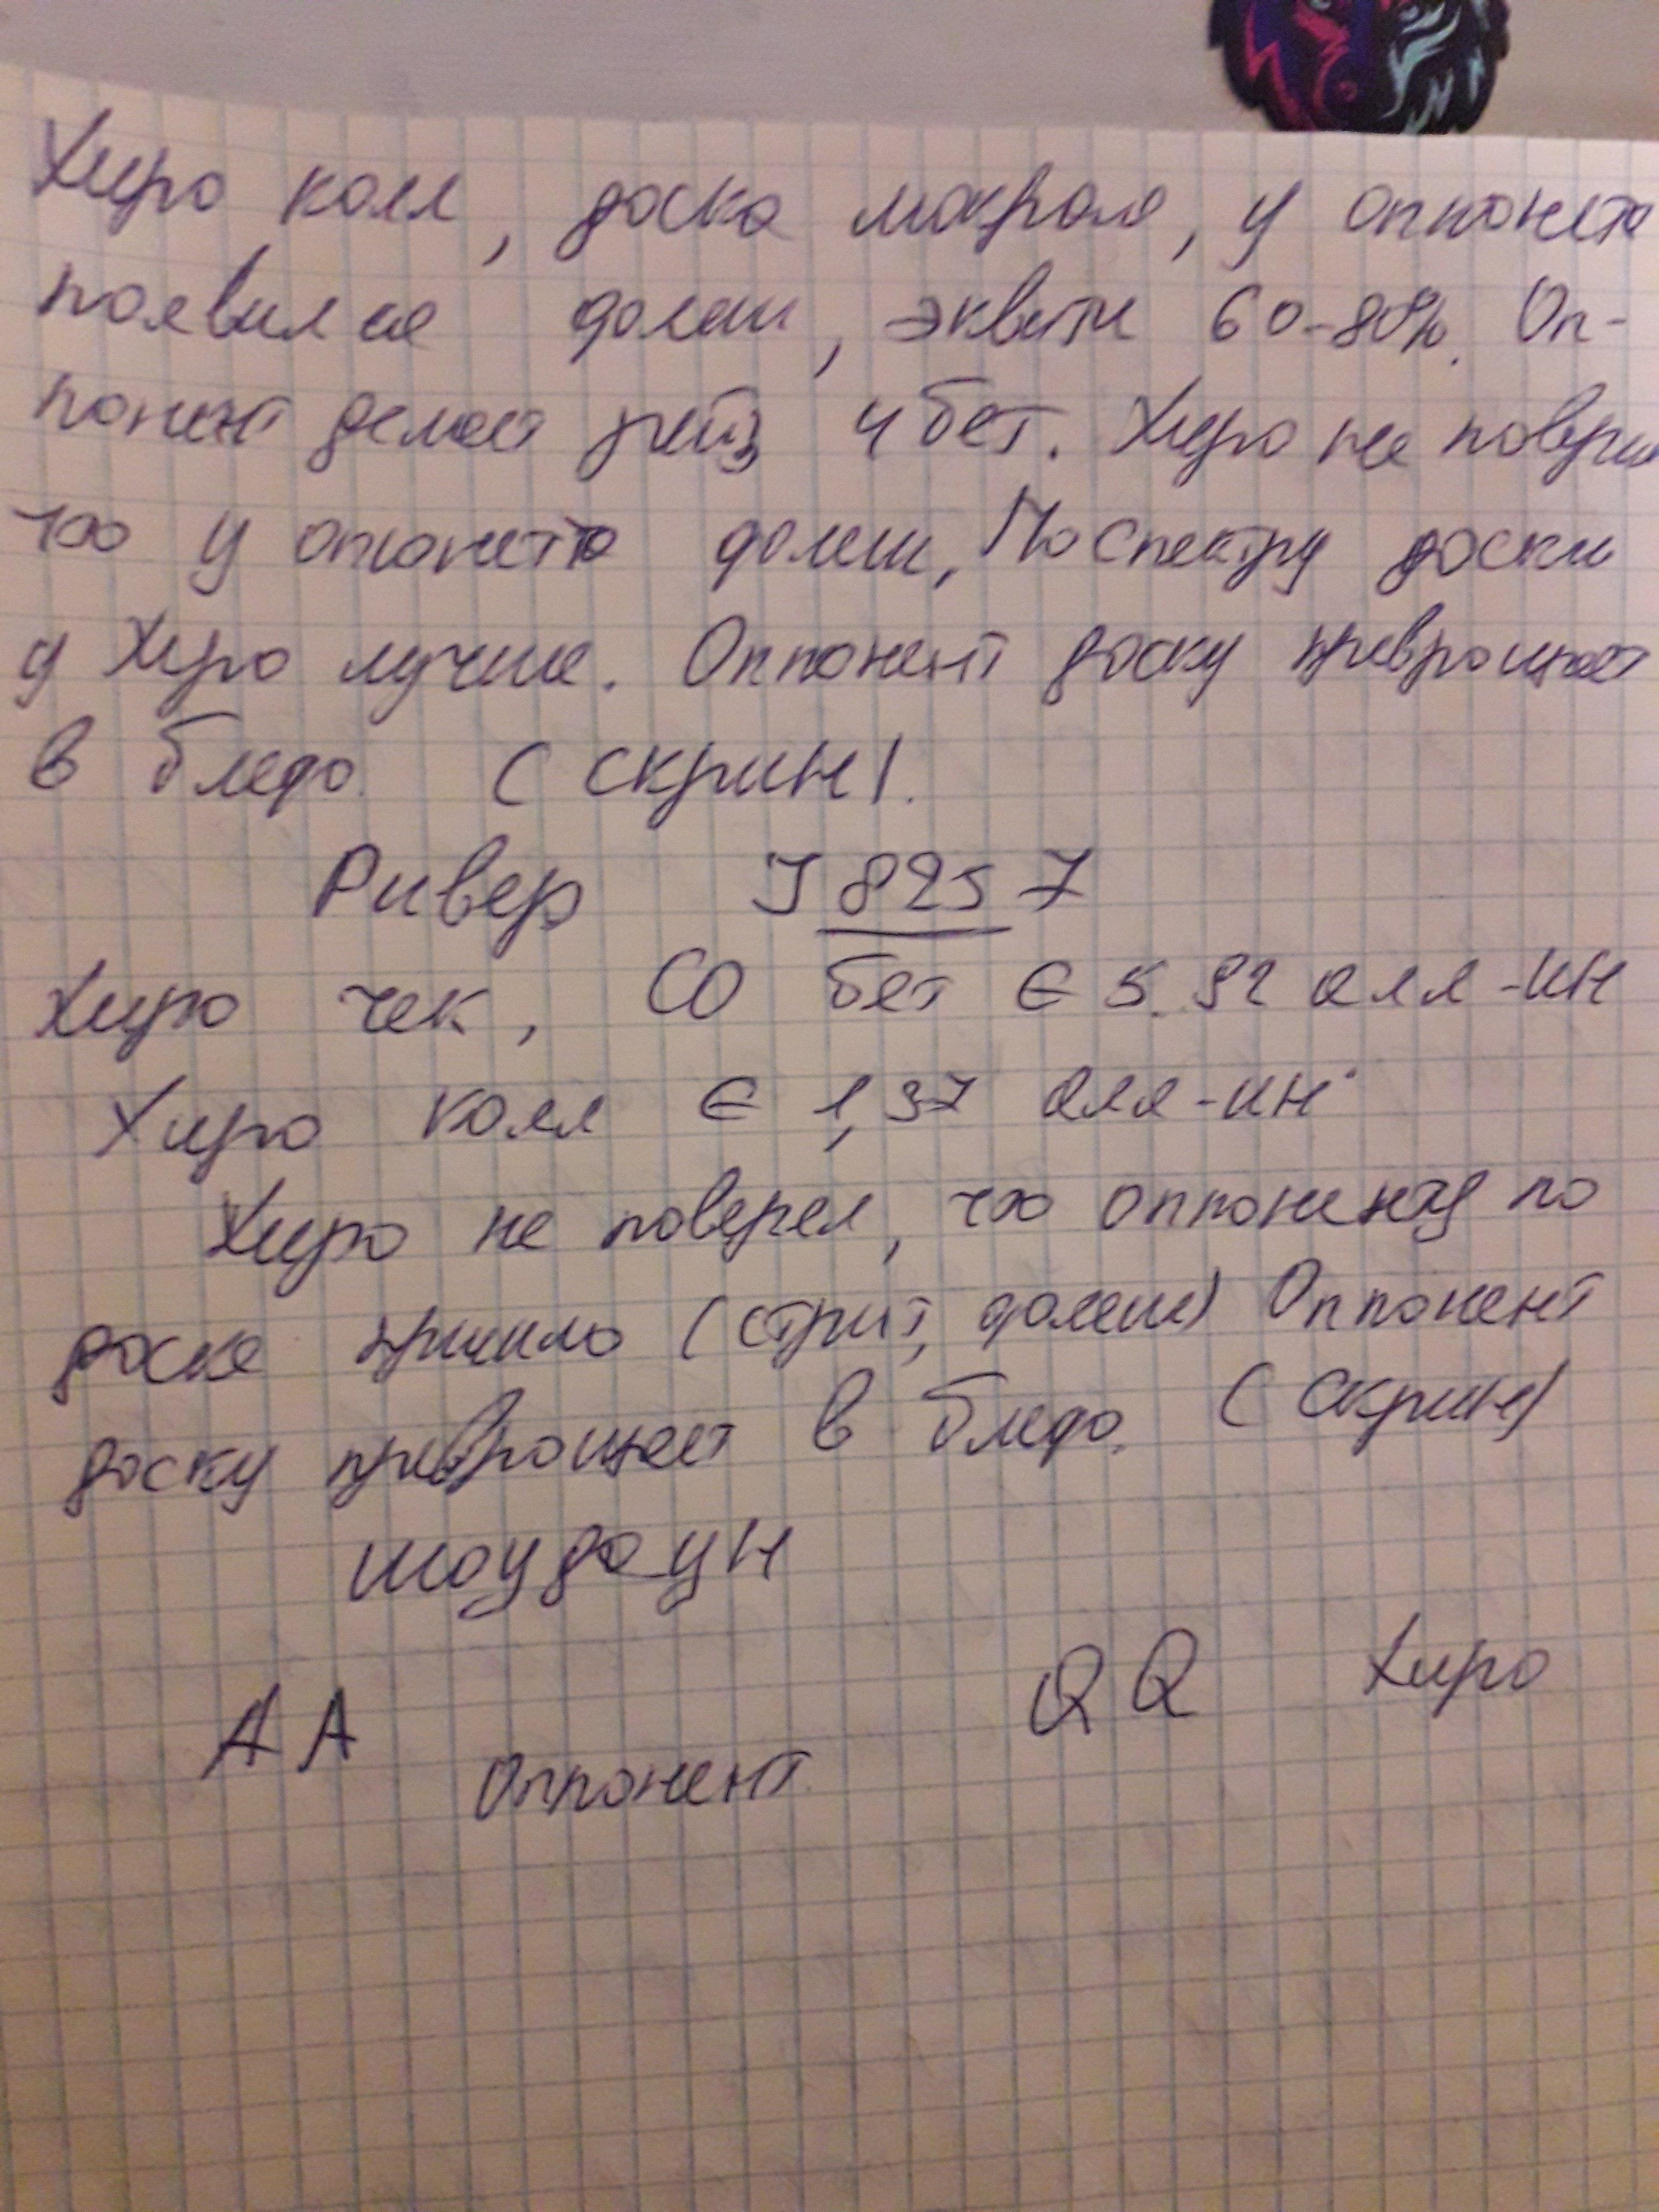 Хиро колл, доска мокрая, у оппонента
появился флеш, эквити 60-80%. Оп-
понент делает рейз 4 бет. Хиро не поверил
что у опонента флеш, По спектру доски
у Хиро лучше. Оппонент доску превращает
в блеф. (скрин).
Ривер J 825 7
Хиро чек, CO бет € 5.92 алл-ин
Хиро колл € 1,37 алл-ин.
Хиро не поверел, что оппоненту по
доске пришло (стрит, флеш) Оппонент
доску превращает в блеф. (скрин)
шоудаун
QQ Хиро
AA Оппонент